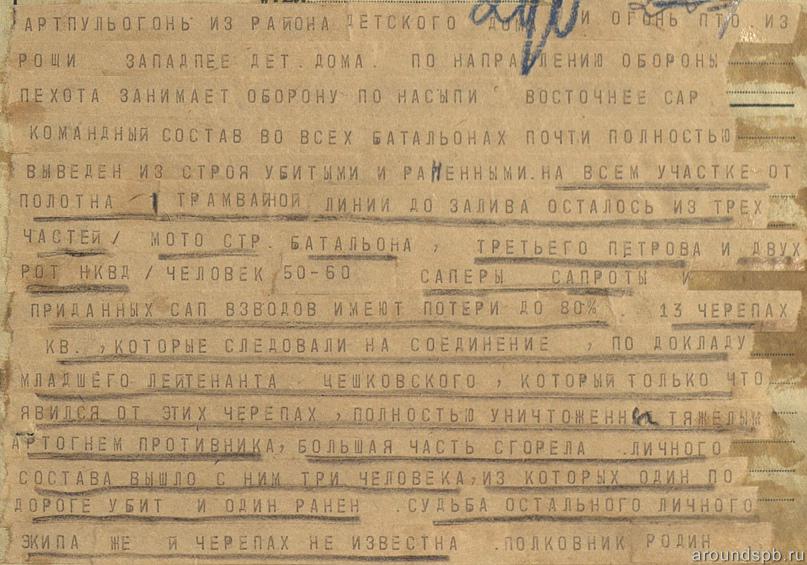 АРТПУЛЬОГОНЬ ИЗ РАЙОНА ДЕТСКОГО ДОМ И ОГОНЬ ПТО.ИЗ
РОЩИ ЗАПАДПЕЕ ДЕТ.ДОМА. ПО НАПРАВЛЕНИЮ ОБОРОНЫ
ПЕХОТА ЗАНИМАЕТ ОБОРОНУ ПО НАСЫПИ ВОСТОЧНЕЕ САР
КОМАНДНЫЙ СОСТАВ ВО ВСЕХ БАТАЛЬОНАХ ПОЧТИ ПОЛНОСТЬЮ
ВЫВЕДЕН ИЗ СТРОЯ УБИТЫМИ И РАНЕННЫМИ.НА ВСЕМ УЧАСТКЕ ОТ
ПОЛОТНА ТРАМВАЙНОЙ ЛИНИИ ДО ЗАЛИВА ОСТАЛОСЬ ИЗ ТРЕХ
ЧАСТЕЙ/ МОТО СТР. БАТАЛЬОНА , ТРЕТЬЕГО ПЕТРОВА И ДВУХ
РОТ НКВД /ЧЕЛОВЕК 50-60 САПЕРЫ САПРОТЫ И
ПРИДАННЫХ САП ВЗВОДОВ ИМЕЮТ ПОТЕРИ ДО 80% . 13 ЧЕРЕПАХ
КВ. ,КОТОРЫЕ СЛЕДОВАЛИ НА СОЕДИНЕНИЕ , ПО ДОКЛАДУ
МЛАДШЕГО ЛЕЙТЕНАНТА ЦЕШКОВСКОГО , КОТОРЫЙ ТОЛЬКО ЧТО
ЯВИЛСЯ ОТ ЭТИХ ЧЕРЕПАХ ,ПОЛНОСТЬЮ УНИЧТОЖЕННЫ ТЯЖЕЛЫМ
АРТОГНЕМ ПРОТИВНИКА, БОЛЬШАЯ ЧАСТЬ СГОРЕЛА .ЛИЧНОГО
СОСТАВА ВЫШЛО С НИМ ТРИ ЧЕЛОВЕКА,ИЗ КОТОРЫХ ОДИН ПО
ДОРОГЕ УБИТ И ОДИН РАНЕН .СУДЬБА ОСТАЛЬНОГО ЛИЧНОГО
ЭКИПА ЖЕ Й ЧЕРЕПАХ НЕ ИЗВЕСТНА .ПОЛКОВНИК РОДИН
aroundspb.ru